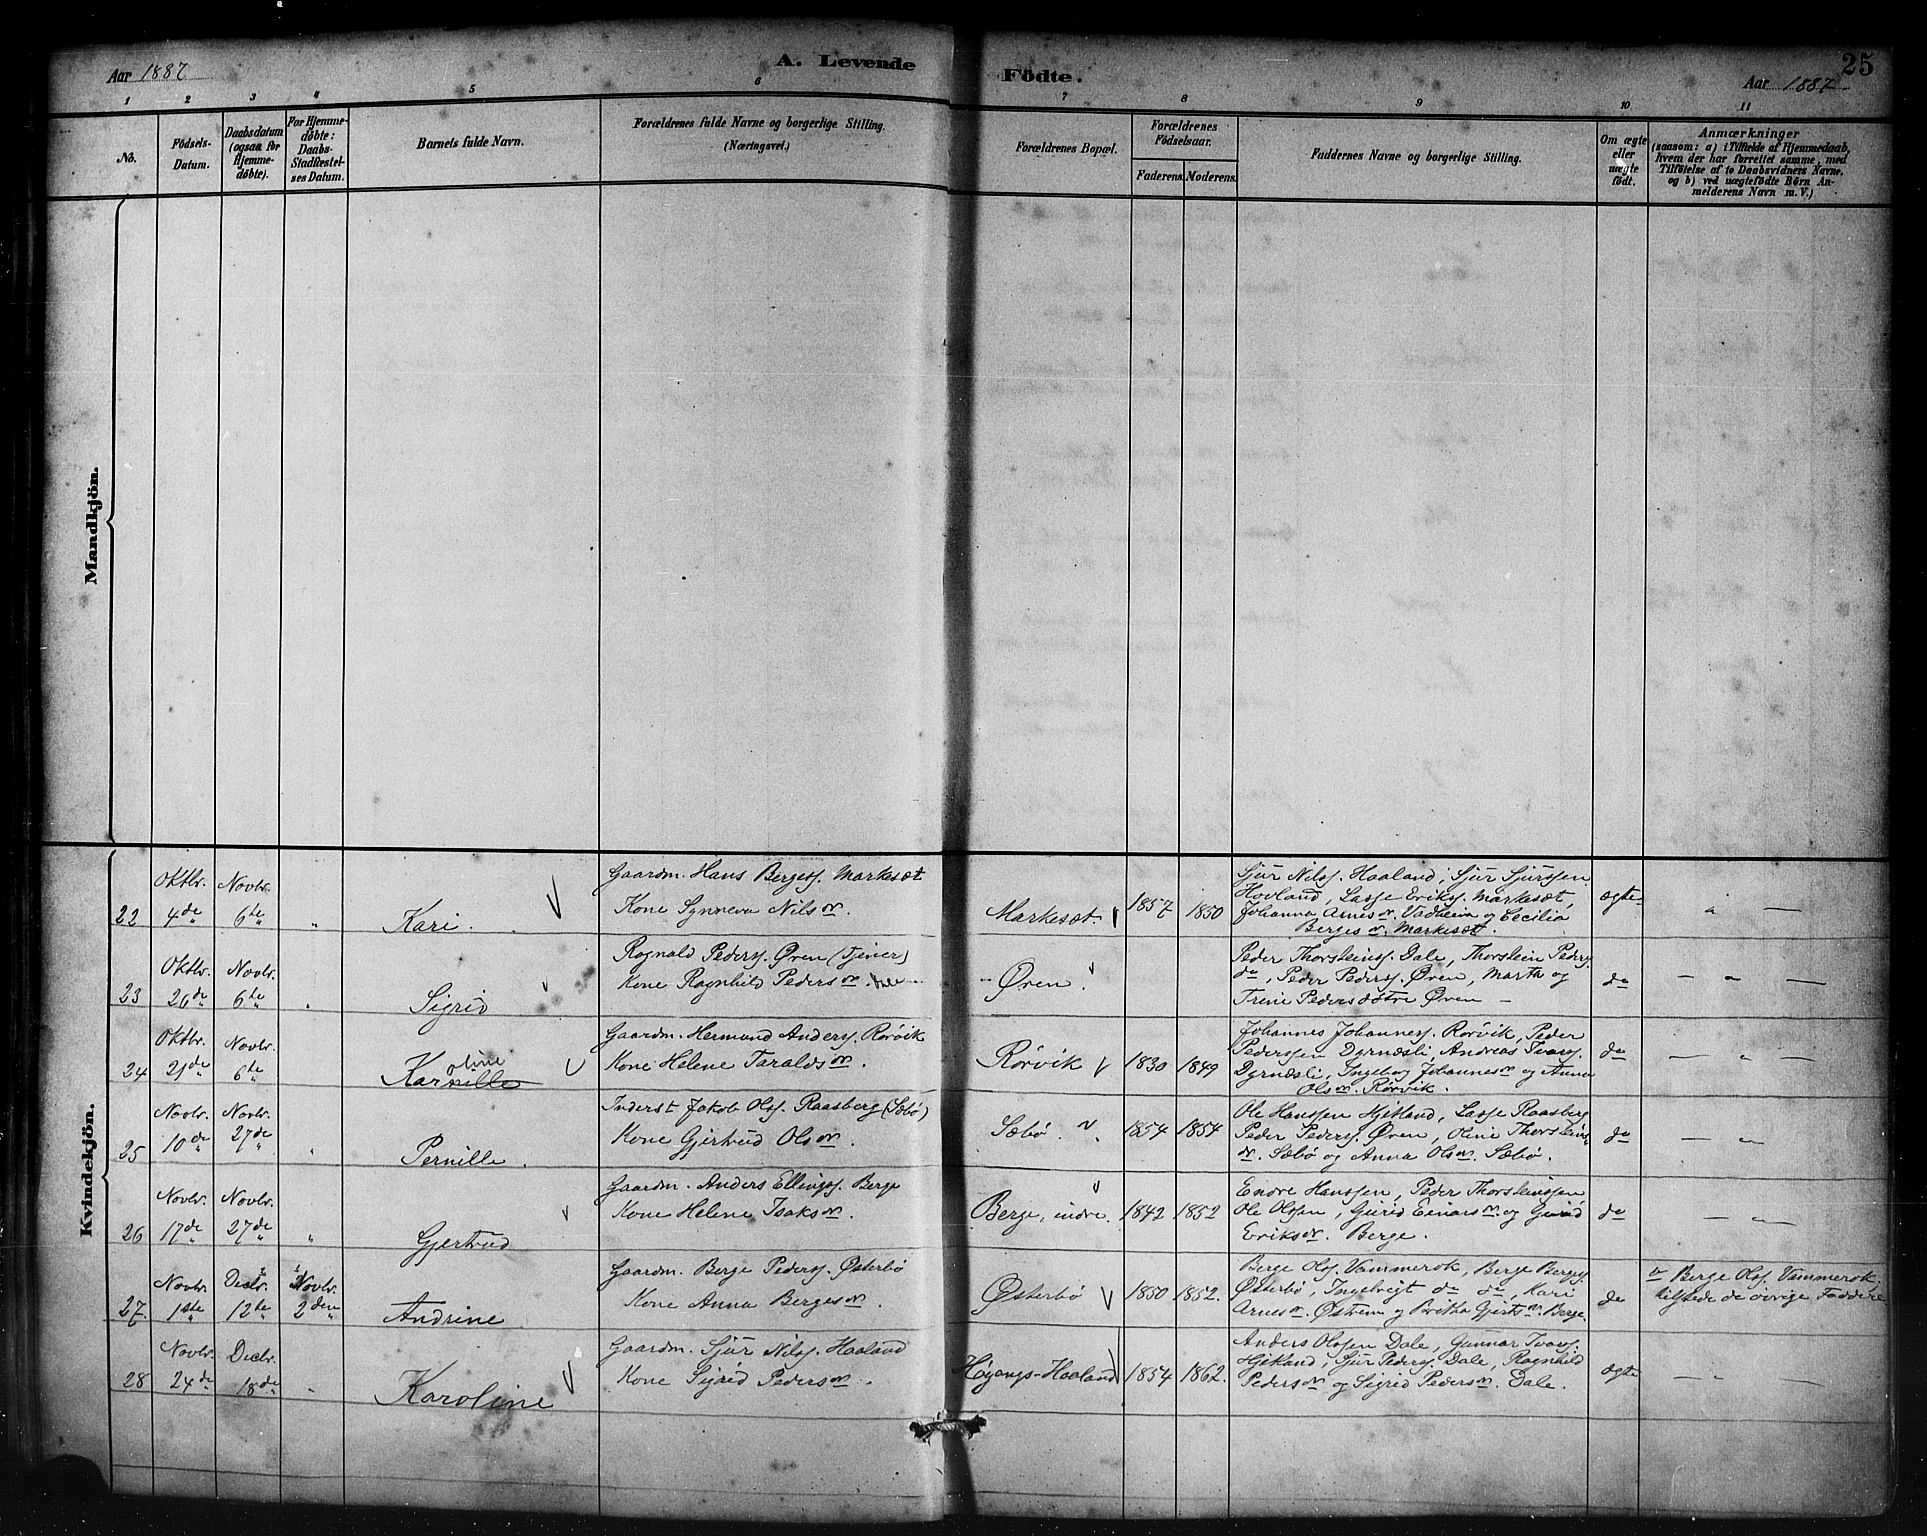 Aar 1887
A. Levende
Födte.
25
Aar 1887
1 2 3 4 5 6 7 8 9 10 11
No.
Födsels-
Datum.
Daabsdatum
(ogsaa for
Hjemme-
døbte).
For Hjemme-
døbte:
Daabs-
Stadfæstel-
ses Datum.
Barnets fulde Navn.
Forældrenes fulde Navne og borgerlige Stilling.
(Næringsvei.)
Forældrenes Bopæl.
Forældrenes
Födselsaar.
Faderens. Moderens.
Faddernes Navne og borgerlige Stilling.
Om ægte
eller
uægte
födt.
Anmærkninger
(saasom: a) i Tilfælde af Hjemmedaab,
hvem der har forrettet samme, med
Tilföielse af to Daabsvidners Navne,
og b) ved uægtefödte Börn An-
melderens Navn m. V.)
Mandkjön.
Kvindekjön.
22
Oktbr.
4de
Novbr.
6te
"
Kari.
Gaardm. Hans Bergess. Markesæt
Kone Synneva Nilsdr.
Markesæt.
1857 1850
Sjur Nilss. Haaland, Sjur Sjurssen
Hovland, Lasse Erikss. Markesæt,
Johanna Arnesdr. Vadheim og Cecilia
Bergesdr. Markesæt.
ægte
" —
23
Oktbr.
20de
Novbr.
6te
"
Sigrid
Rognald Peders. Øren (Tjener)
Kone Ragnhild Pedersdr.
Øren.
Peder Thorsteinss. Dale, Thorstein Peders.
do, Peder Peders. Øren, Marta og
Trine Pedersdøtre Øren —
do
— " —
24
Oktbr.
21de
Novbr.
6te
Karnille
oline
Gaardm. Hermund Anderss. Rørvik
Kone Helene Taraldsdr.
Rørvik
1830 1849
Johannes Johanness. Rørvik, Peder
Pederssen Dyrnesli, Andreas Ivarss.
Dyrnesli, Ingeborg Johannesdr og Anna
Olsdr. Rørvik.
do
— " —
25
Novbr.
10de
Novbr.
27de
"
Pernille.
Inderst Jakob Olss. Raasberg (Sæbø)
Kone Gjertrud Olsdr.
Sæbø.
1854 1854
Ole Hanssen Hjetland, Lasse Raasberg
Peder Peders. Øren, Oline Thorsteins
dr. Sæbø og Anna Olsdr. Sæbø.
do
— " —
26
Novbr.
17de
Novbr.
27de
"
Gjertrud
Gaardm. Anders Ellings. Berge
Kone Helene Isaksdr.
Berge, indre.
1842 1852
Endre Hanssen, Peder Thorsteinssen
Ole Olssen, Gurid Einarsdr og Gurid
Eriksdr. Berge.
do
— " —
27.
Novbr.
1ste
Decbr.
12te
Novbr.
2den
Andrine
Gaardm. Berge Peders. Østerbø
Kone Anna Bergesdr.
Østerbø
1850 1852.
Berge Olss. Vammerok, Berge Berges.
Østerbø, Ingelreigt do do, Kari
Arnesdr. Østrem og Brita Gjertsdr. Berge.
do
Berge Olss. Vammerok
tilstede de øvrige Faddere
28
Novbr.
24de
Decbr.
18de
"
Karoline
Gaardm. Sjur Nilss. Haaland
Kone Sigrid Pedersdr.
Høyangs-Haaland
1854 1862.
Anders Olssen Dale, Gunnar Ivars.
Hjetland, Sjur Peders. Dale, Ragnhild
Pedersdr og Sigrid Pedersdr. Dale.
ægte
— " —